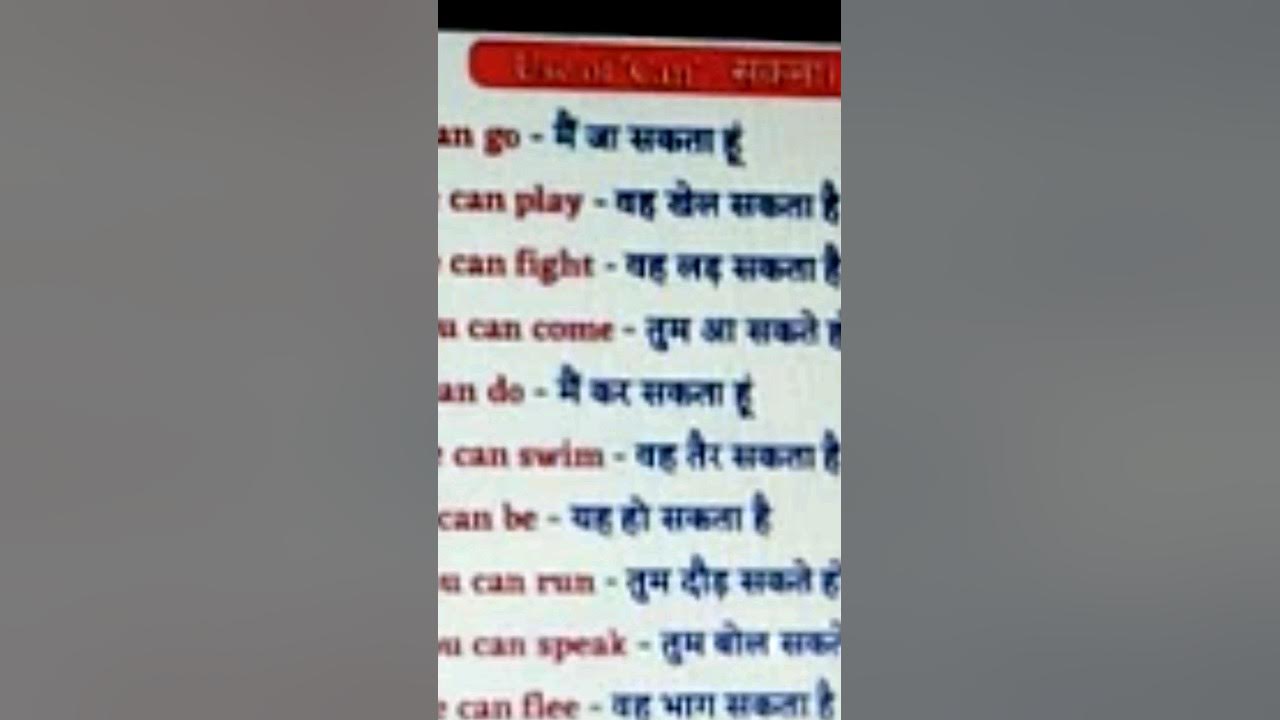 Use of 'Can' सकना
an go - मैं जा सकता हूं
can play - वह खेल सकता है
can fight - वह लड़ सकता है
u can come - तुम आ सकते हो
an do - मैं कर सकता हूं
e can swim - वह तैर सकता है
can be - यह हो सकता है
u can run - तुम दौड़ सकते हो
ou can speak - तुम बोल सकते
e can flee - वह भाग सकता है